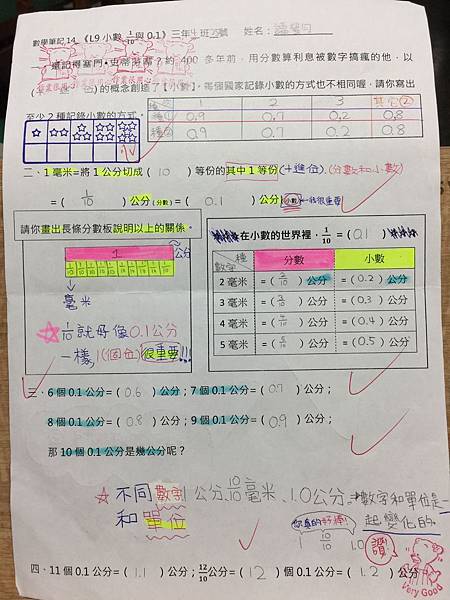 數學筆記14 《L9小數 1/10 與 0.1》三年 班 號 姓名：
一、還記得塞門‧史蒂芬嗎？約 400 多年前，用分數算利息被數字搞瘋的他，以
( )的概念創造了【小數】，每個國家記錄小數的方式也不相同喔，請你寫出
至少 2 種記錄小數的方式。
1 2 3 其他②
0.9 0.7 0.2 0.8
0.9 0.7 0.2 0.8
二、1 毫米=將 1 公分切成( 10 )等份的其中 1 等份(十進位)(分數和小數)
=( 1/10 )公分(分數)=( 0.1 )公分(小數)
很重要
請你畫出長條分數板說明以上的關係。
1 公分
1/10 1/10 1/10 1/10 1/10 1/10 1/10 1/10 1/10 1/10
毫米
☆ 1/10 就好像 0.1公分
一樣，1(個位) 很重要!!!
在小數的世界裡，1/10 =( 0.1 )
種 數字 分數 小數
2 毫米 =( 2/10 )公分 =( 0.2 )公分
3 毫米 =( 3/10 )公分 =( 0.3 )公分
4 毫米 =( 4/10 )公分 =( 0.4 )公分
5 毫米 =( 5/10 )公分 =( 0.5 )公分
三、6 個 0.1 公分=( 0.6 )公分；7 個 0.1 公分=( 0.7 )公分；
8 個 0.1 公分=( 0.8 )公分；9 個 0.1 公分=( 0.9 )公分；
那 10 個 0.1 公分是幾公分呢？
☆ 不同數字 1公分、10/10毫米、1.0公分 →數字和單位是一
和單位 起變化的
你真的好棒!
1 10/10 1.0
讚!
Very Good
四、11 個 0.1 公分=( 1.1 )公分；12/10 公分=( 12 )個 0.1 公分=( 1.2 )公分